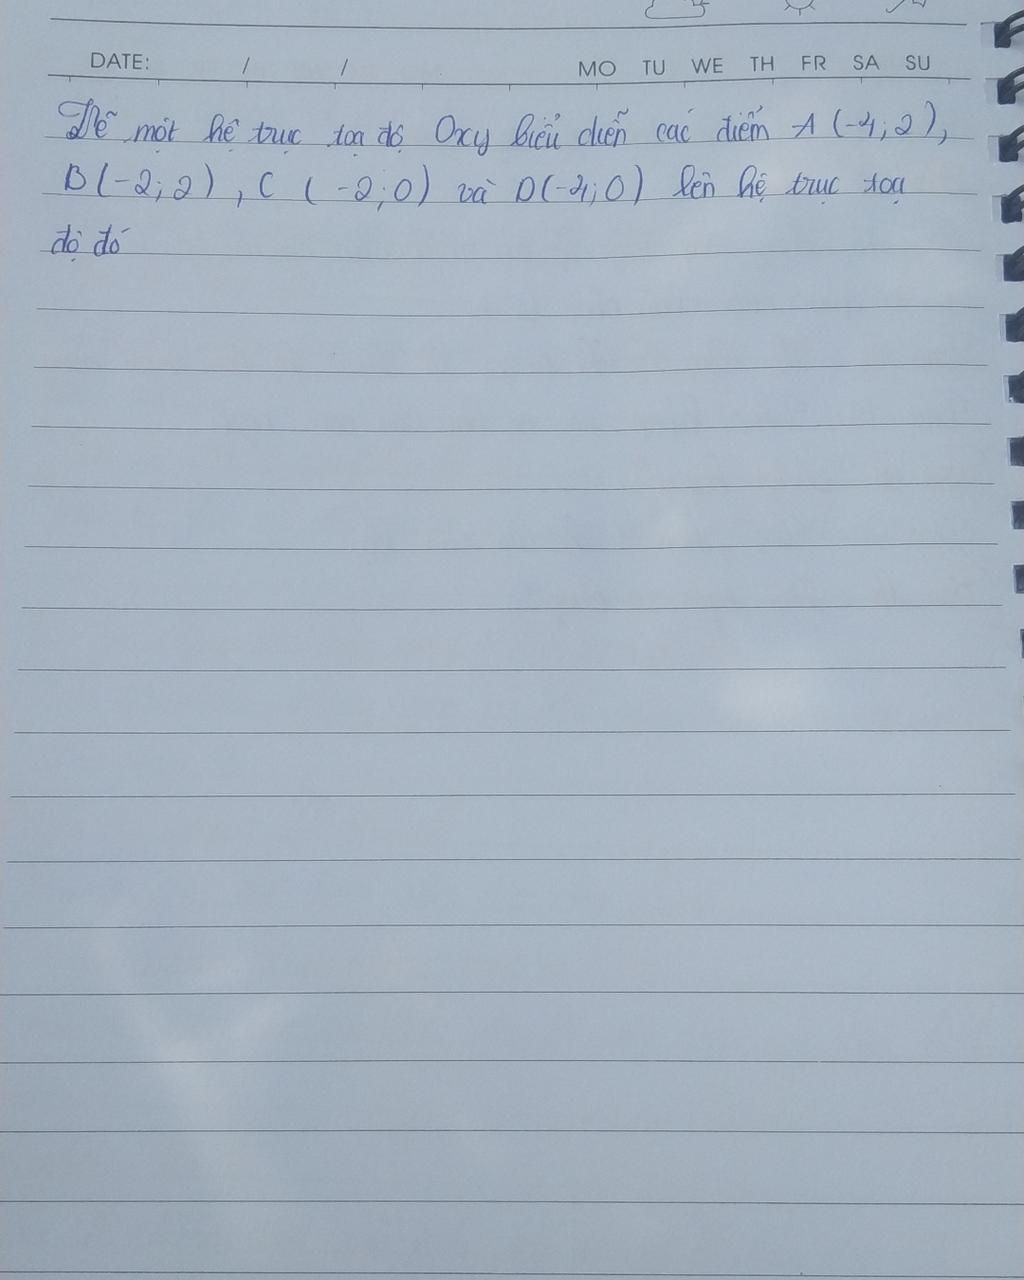 DATE: / / MO TU WE TH FR SA SU
Vẽ một hệ trục tọa độ Oxy biểu diễn các điểm A (-4; 2),
B(-2; 2), C (-2; 0) và D(-4; 0) lên hệ trục toạ
độ đó